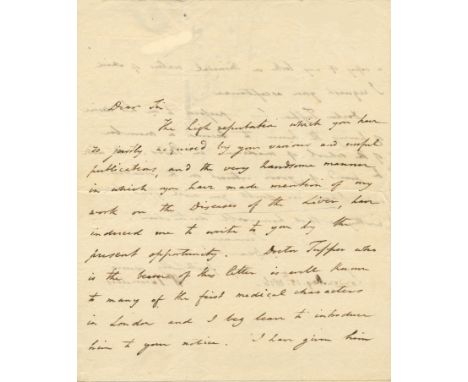 Dear Sir
The high reputation which you have
so justly acquired by your various and useful
publications, and the very handsome manner
in which you have made mention of my
work on the Diseases of the Liver, have
induced me to write to you by the
present opportunity. Doctor Tupper who
is the bearer of this letter is well known
to many of the first medical characters
in London and I beg leave to introduce
him to your notice. I have given him